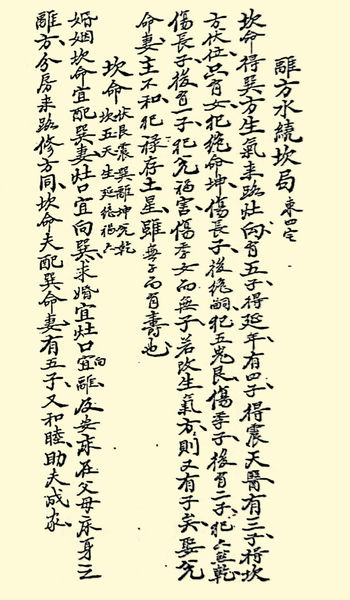 離方水繞坎局 東四宅
坎命得巽方生氣來路灶向有五子得延年有四子得震天醫有三子得坎
方伏位只有女犯絕命坤傷長子後絕嗣犯五鬼艮傷季子後有二子犯六煞乾
傷長子後有一子犯兌禍害傷季女而無子若改生氣方則又有子矣娶兌
命妻主不和犯祿存土星雖無子而有壽也
坎命 伏艮震巽離坤兌乾
坎五天生延絕禍六
婚姻坎命宜配巽妻灶口宜向巽求婚宜灶口宜向離及安床在父母床身之
離方分房來路修方同坎命夫配巽命妻有五子又和睦助夫成家